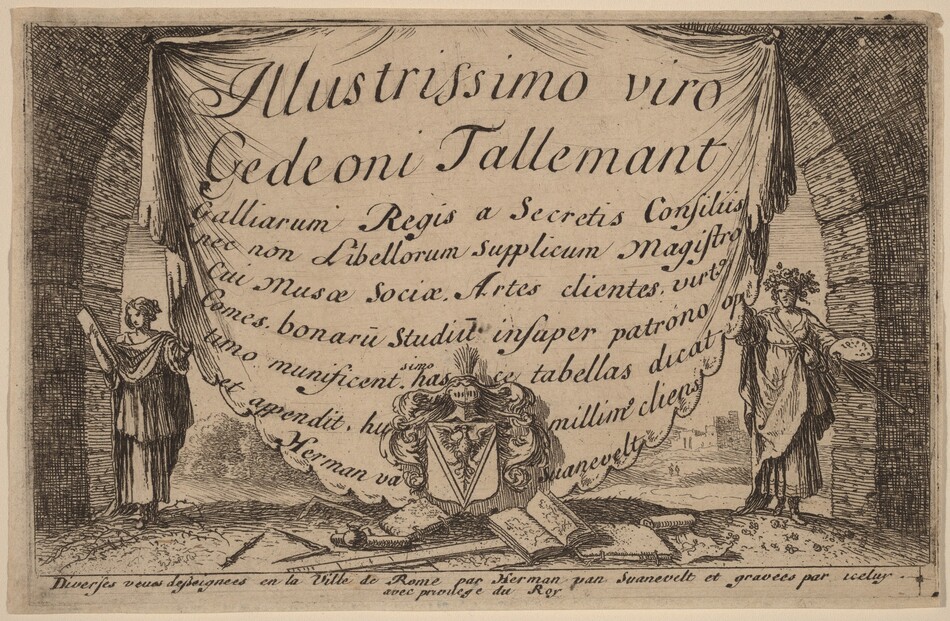 Illustrissimo viro
Gedeoni Tallemant
Galliarum Regis a Secretis Consiliis
nec non Libellorum supplicum Magistro
Cui Musæ Sociæ. Artes clientes. virt9
Comes. bonarū studiū insuper patrono op
timo munificent.simo has ce tabellas dicat
et appendit. hu millime cliens
Herman va Suanevelt
Diverses veues desseignees en la Ville de Rome par Herman van Suanevelt et gravees par iceluy.
avec privilege du Roy